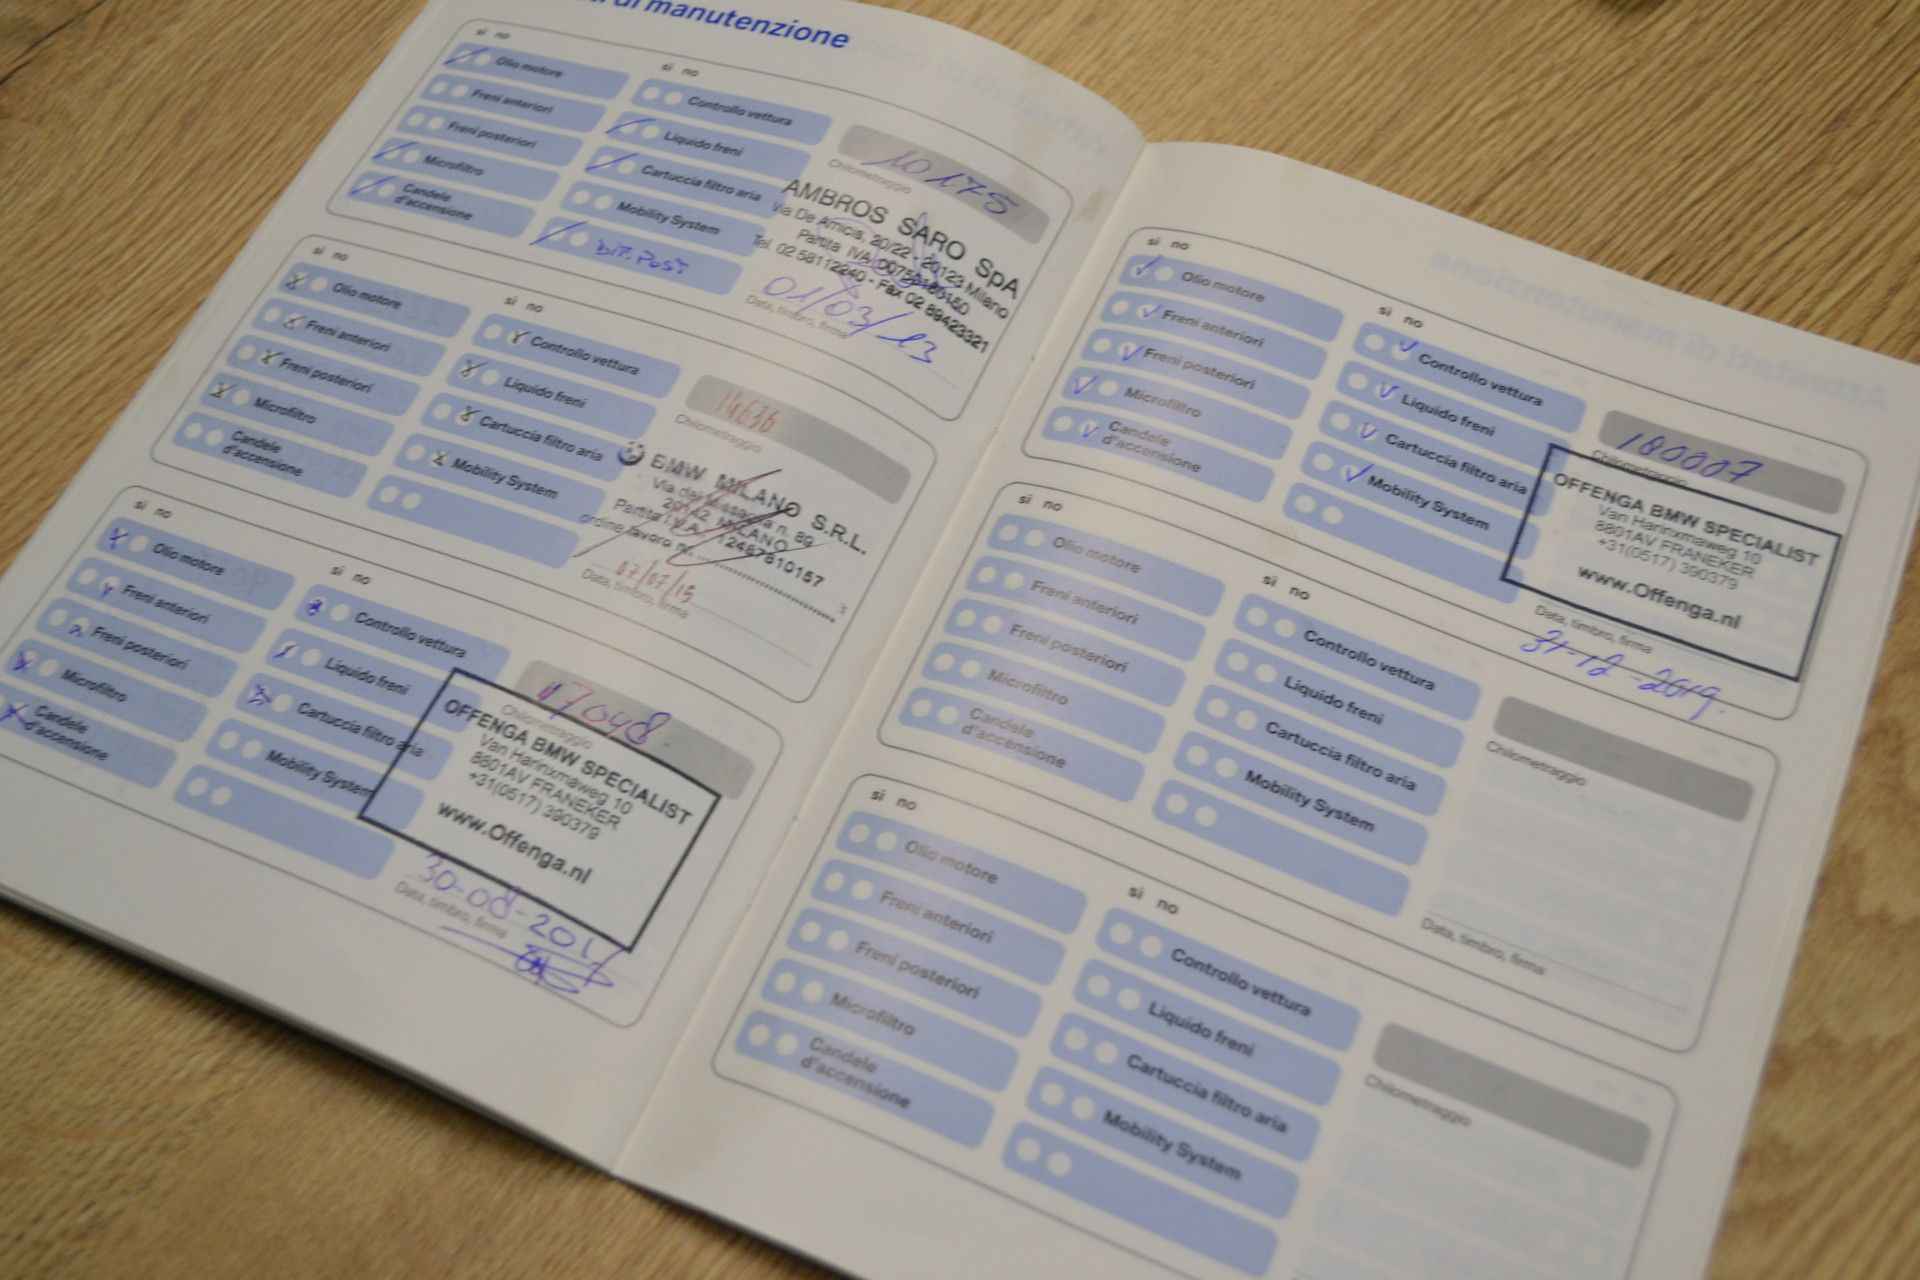 di manutenzione
si no
Olio motore
Freni anteriori
Freni posteriori
Microfiltro
Candele
d'accensione
si no
Controllo vettura
Liquido freni
Cartuccia filtro aria
Mobility System
DIF. POST
Chilometraggio
AMBROS SARO SpA
Via De Amicis, 20/22 - 20123 Milano
Partita IVA
Tel. 02 58112240 - Fax 02 89423321
01/03/13
Data, timbro, firma
si no
Olio motore
Freni anteriori
Freni posteriori
Microfiltro
Candele
d'accensione
si no
Controllo vettura
Liquido freni
Cartuccia filtro aria
Mobility System
Chilometraggio
BMW MILANO S.R.L.
Via dei Missaglia n. 89
20142 MILANO
Partita I.V.A. 12467810157
ordine lavoro n.
07/07/15
Data, timbro, firma
si no
Olio motore
Freni anteriori
Freni posteriori
Microfiltro
Candele
d'accensione
si no
Controllo vettura
Liquido freni
Cartuccia filtro aria
Mobility System
Chilometraggio
OFFENGA BMW SPECIALIST
Van Harinxmaweg 10
8801AV FRANEKER
+31(0517) 390379
www.Offenga.nl
30-08-2017
Data, timbro, firma
si no
Olio motore
Freni anteriori
Freni posteriori
Microfiltro
Candele
d'accensione
si no
Controllo vettura
Liquido freni
Cartuccia filtro aria
Mobility System
180007
Chilometraggio
OFFENGA BMW SPECIALIST
Van Harinxmaweg 10
8801AV FRANEKER
+31(0517) 390379
www.Offenga.nl
Data, timbro, firma
31-12-2019.
si no
Olio motore
Freni anteriori
Freni posteriori
Microfiltro
Candele
d'accensione
si no
Controllo vettura
Liquido freni
Cartuccia filtro aria
Mobility System
Chilometraggio
Data, timbro, firma
si no
Olio motore
Freni anteriori
Freni posteriori
Microfiltro
Candele
d'accensione
si no
Controllo vettura
Liquido freni
Cartuccia filtro aria
Mobility System
Chilometraggio